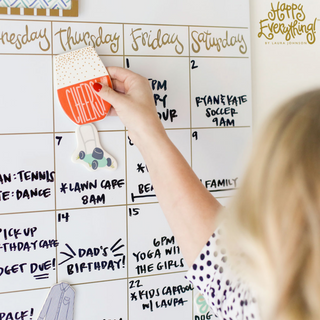 Happy
Everything!
BY LAURA JOHNSON
nesday Thursday Friday Saturday
CHEERS
1
PM
PY
OUR
2
RYAN & KATE
SOCCER
9AM
AN: TENNIS
TE: DANCE
7
*LAWN CARE
8AM
*
BE
9
FAMILY
PICK UP
RTHDAY CAKE
DGET DUE!
14
DAD'S
BIRTHDAY!
15
6PM
YOGA WITH
THE GIRLS
16
PACK!
22
*KIDS CARPOOL
W/LAURA
DOG